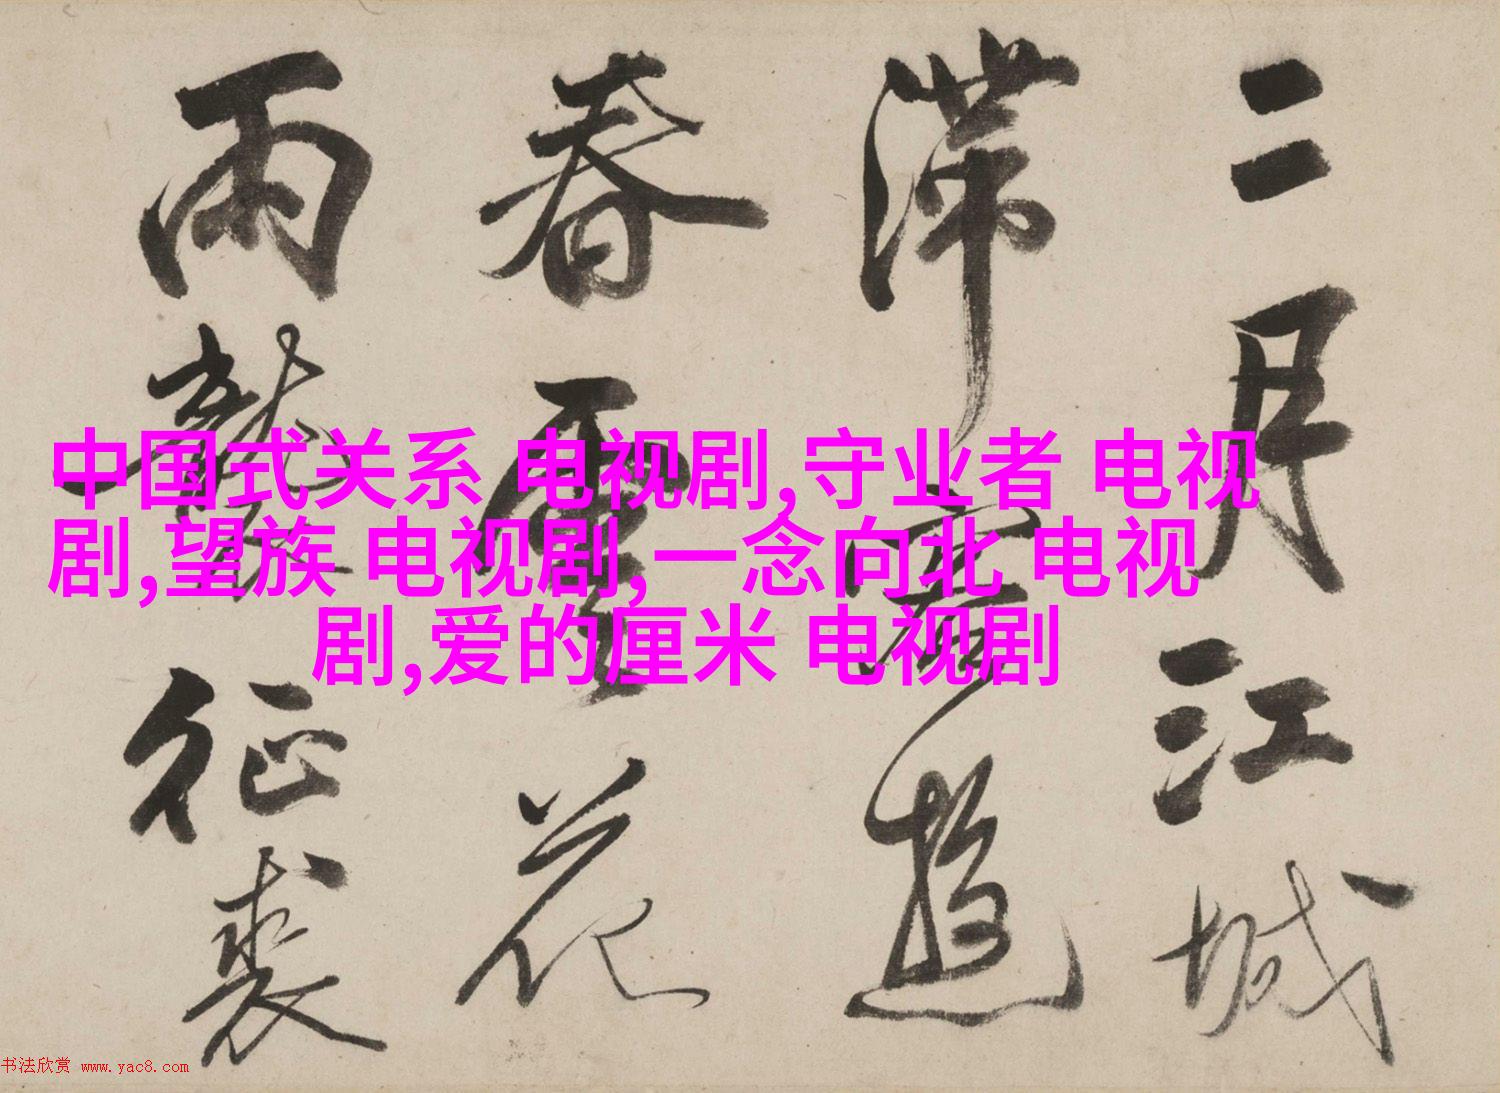 二月江城
滞客遊
春雲花
雨襲征裘
中国式关系 电视剧,守业者 电视
剧,望族 电视剧,一念向北 电视
剧,爱的厘米 电视剧
书法欣赏 www.yac8.com